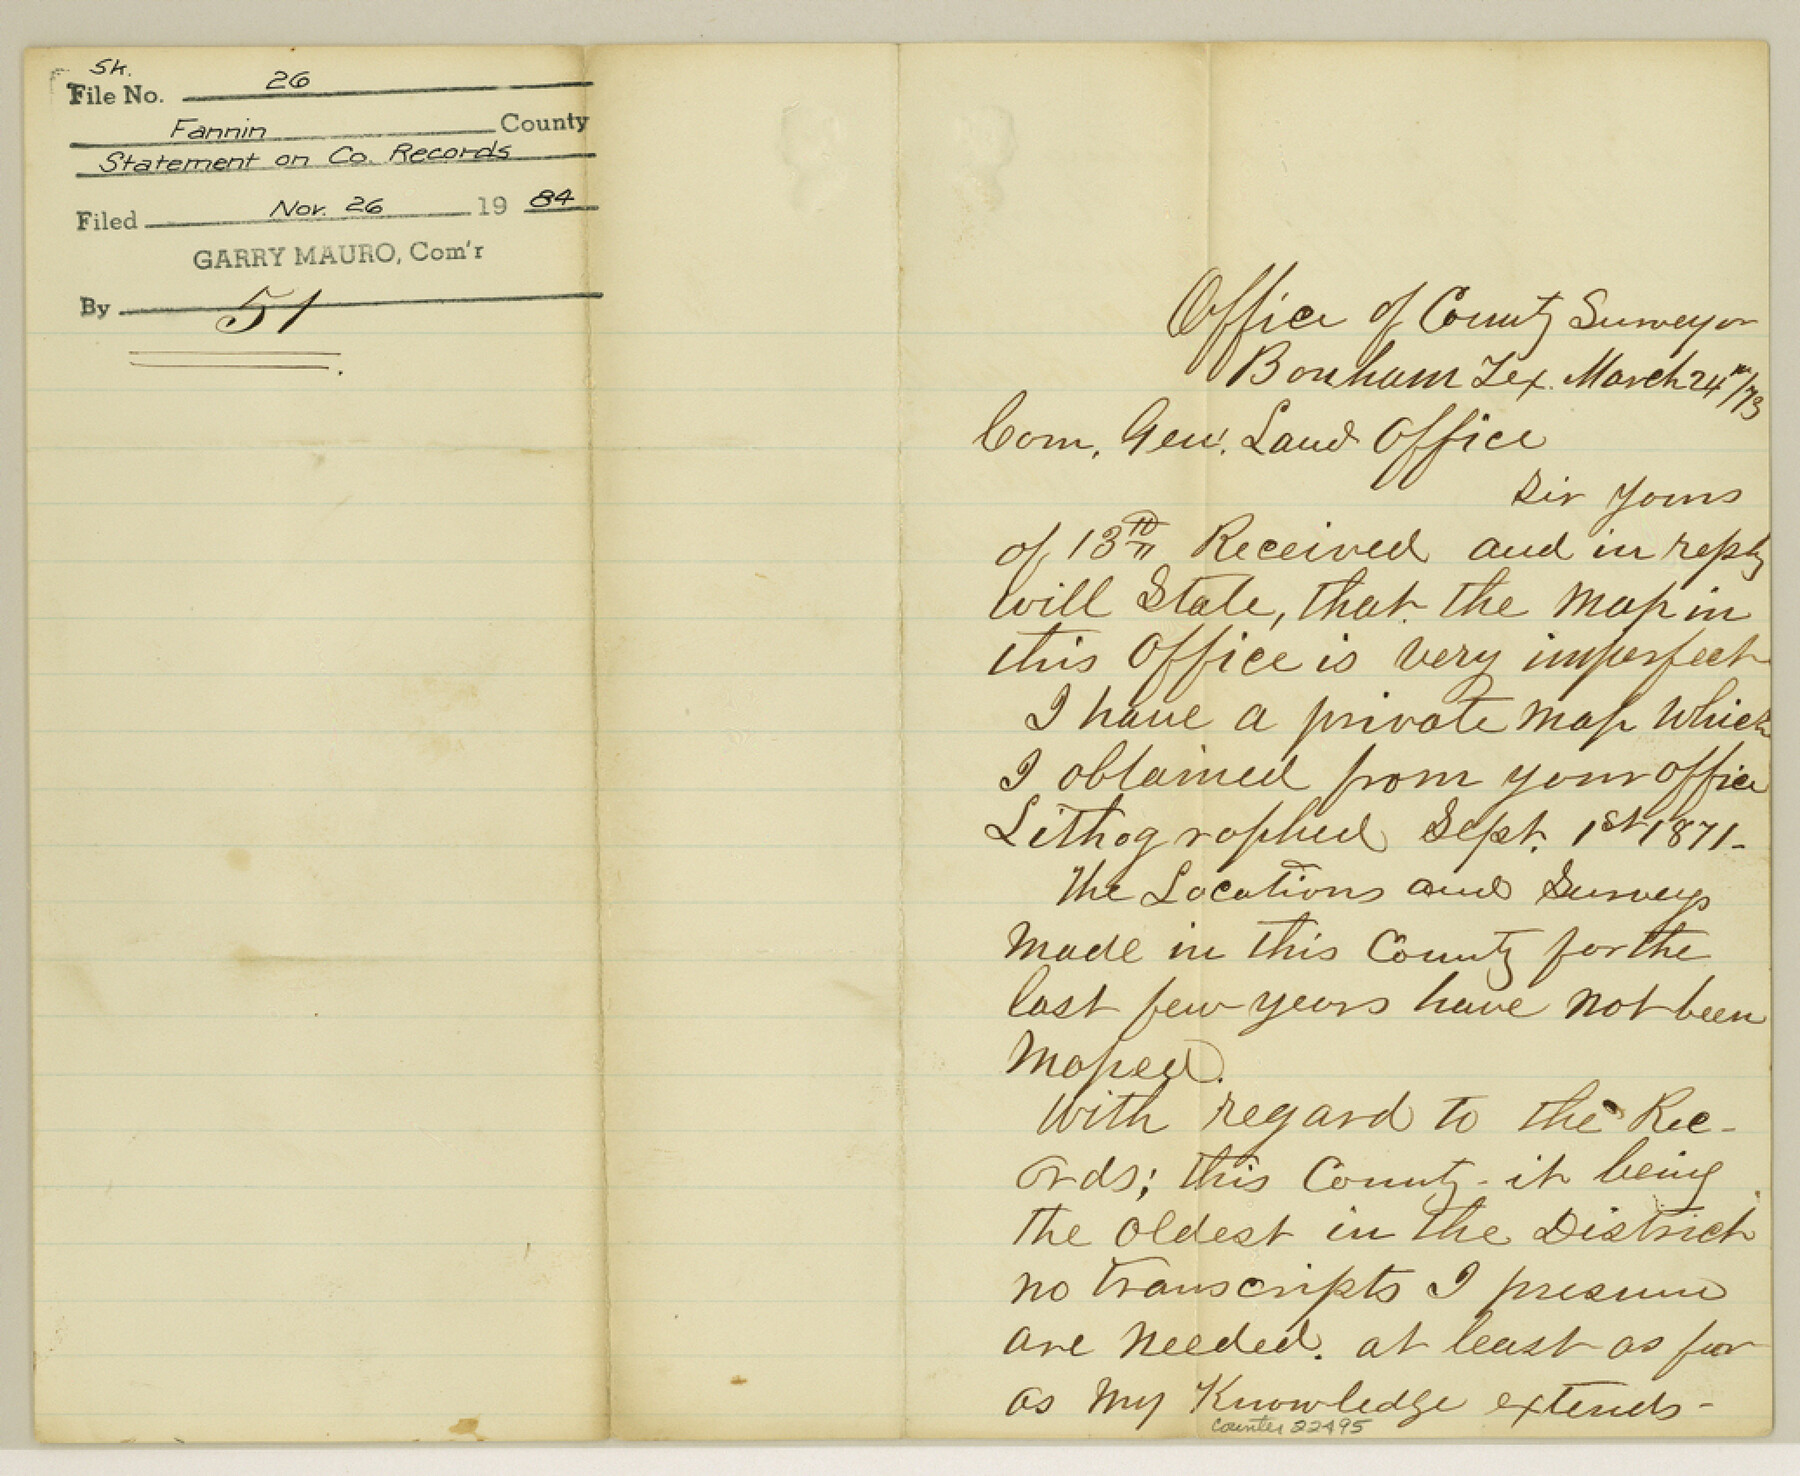 Sk.
File No. 26
Fannin County
Statement on Co. Records
Filed Nov. 26 1984
GARRY MAURO, Com'r
By
51
Office of County Surveyor
Bonham Tex. March 24th/73
Com. Genl. Land Office
Sir Yours
of 13th Received and in reply
will State, that the Map in
this Office is very imperfect
I have a private Map which
I obtained from your office
Lithographed Sept. 1st 1871-
The Locations and Surveys
Made in this County for the
last few years have not been
Maped.
With regard to the Rec-
ords; this County - it being
the oldest in the District
no transcripts I presume
are needed. at least as far
as My Knowledge extends-
counter 22495